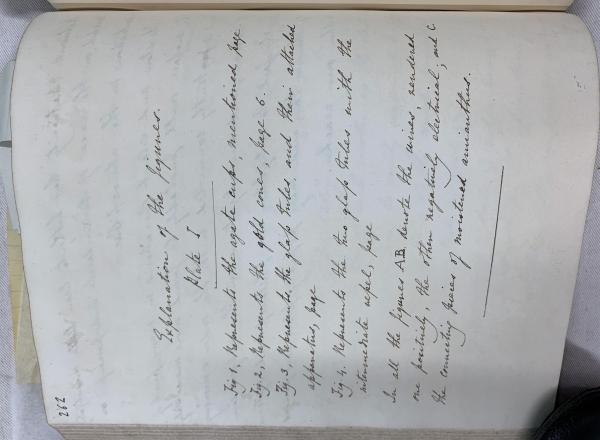 262
Explanation of the figures.
Plate I
Fig 1, Represents the agate cups, mentioned page
Fig. 2, Represents the gold cones, page 6.
Fig. 3, Represents the glass tubes and their attached
apparatus, page
Fig 4. Represents the two glass tubes with the
intermediate vessel, page
In all the figures AB. denote the wires, rendered
one positively, the other negatively electrical; and C.
the connecting pieces of moistened amianthus.